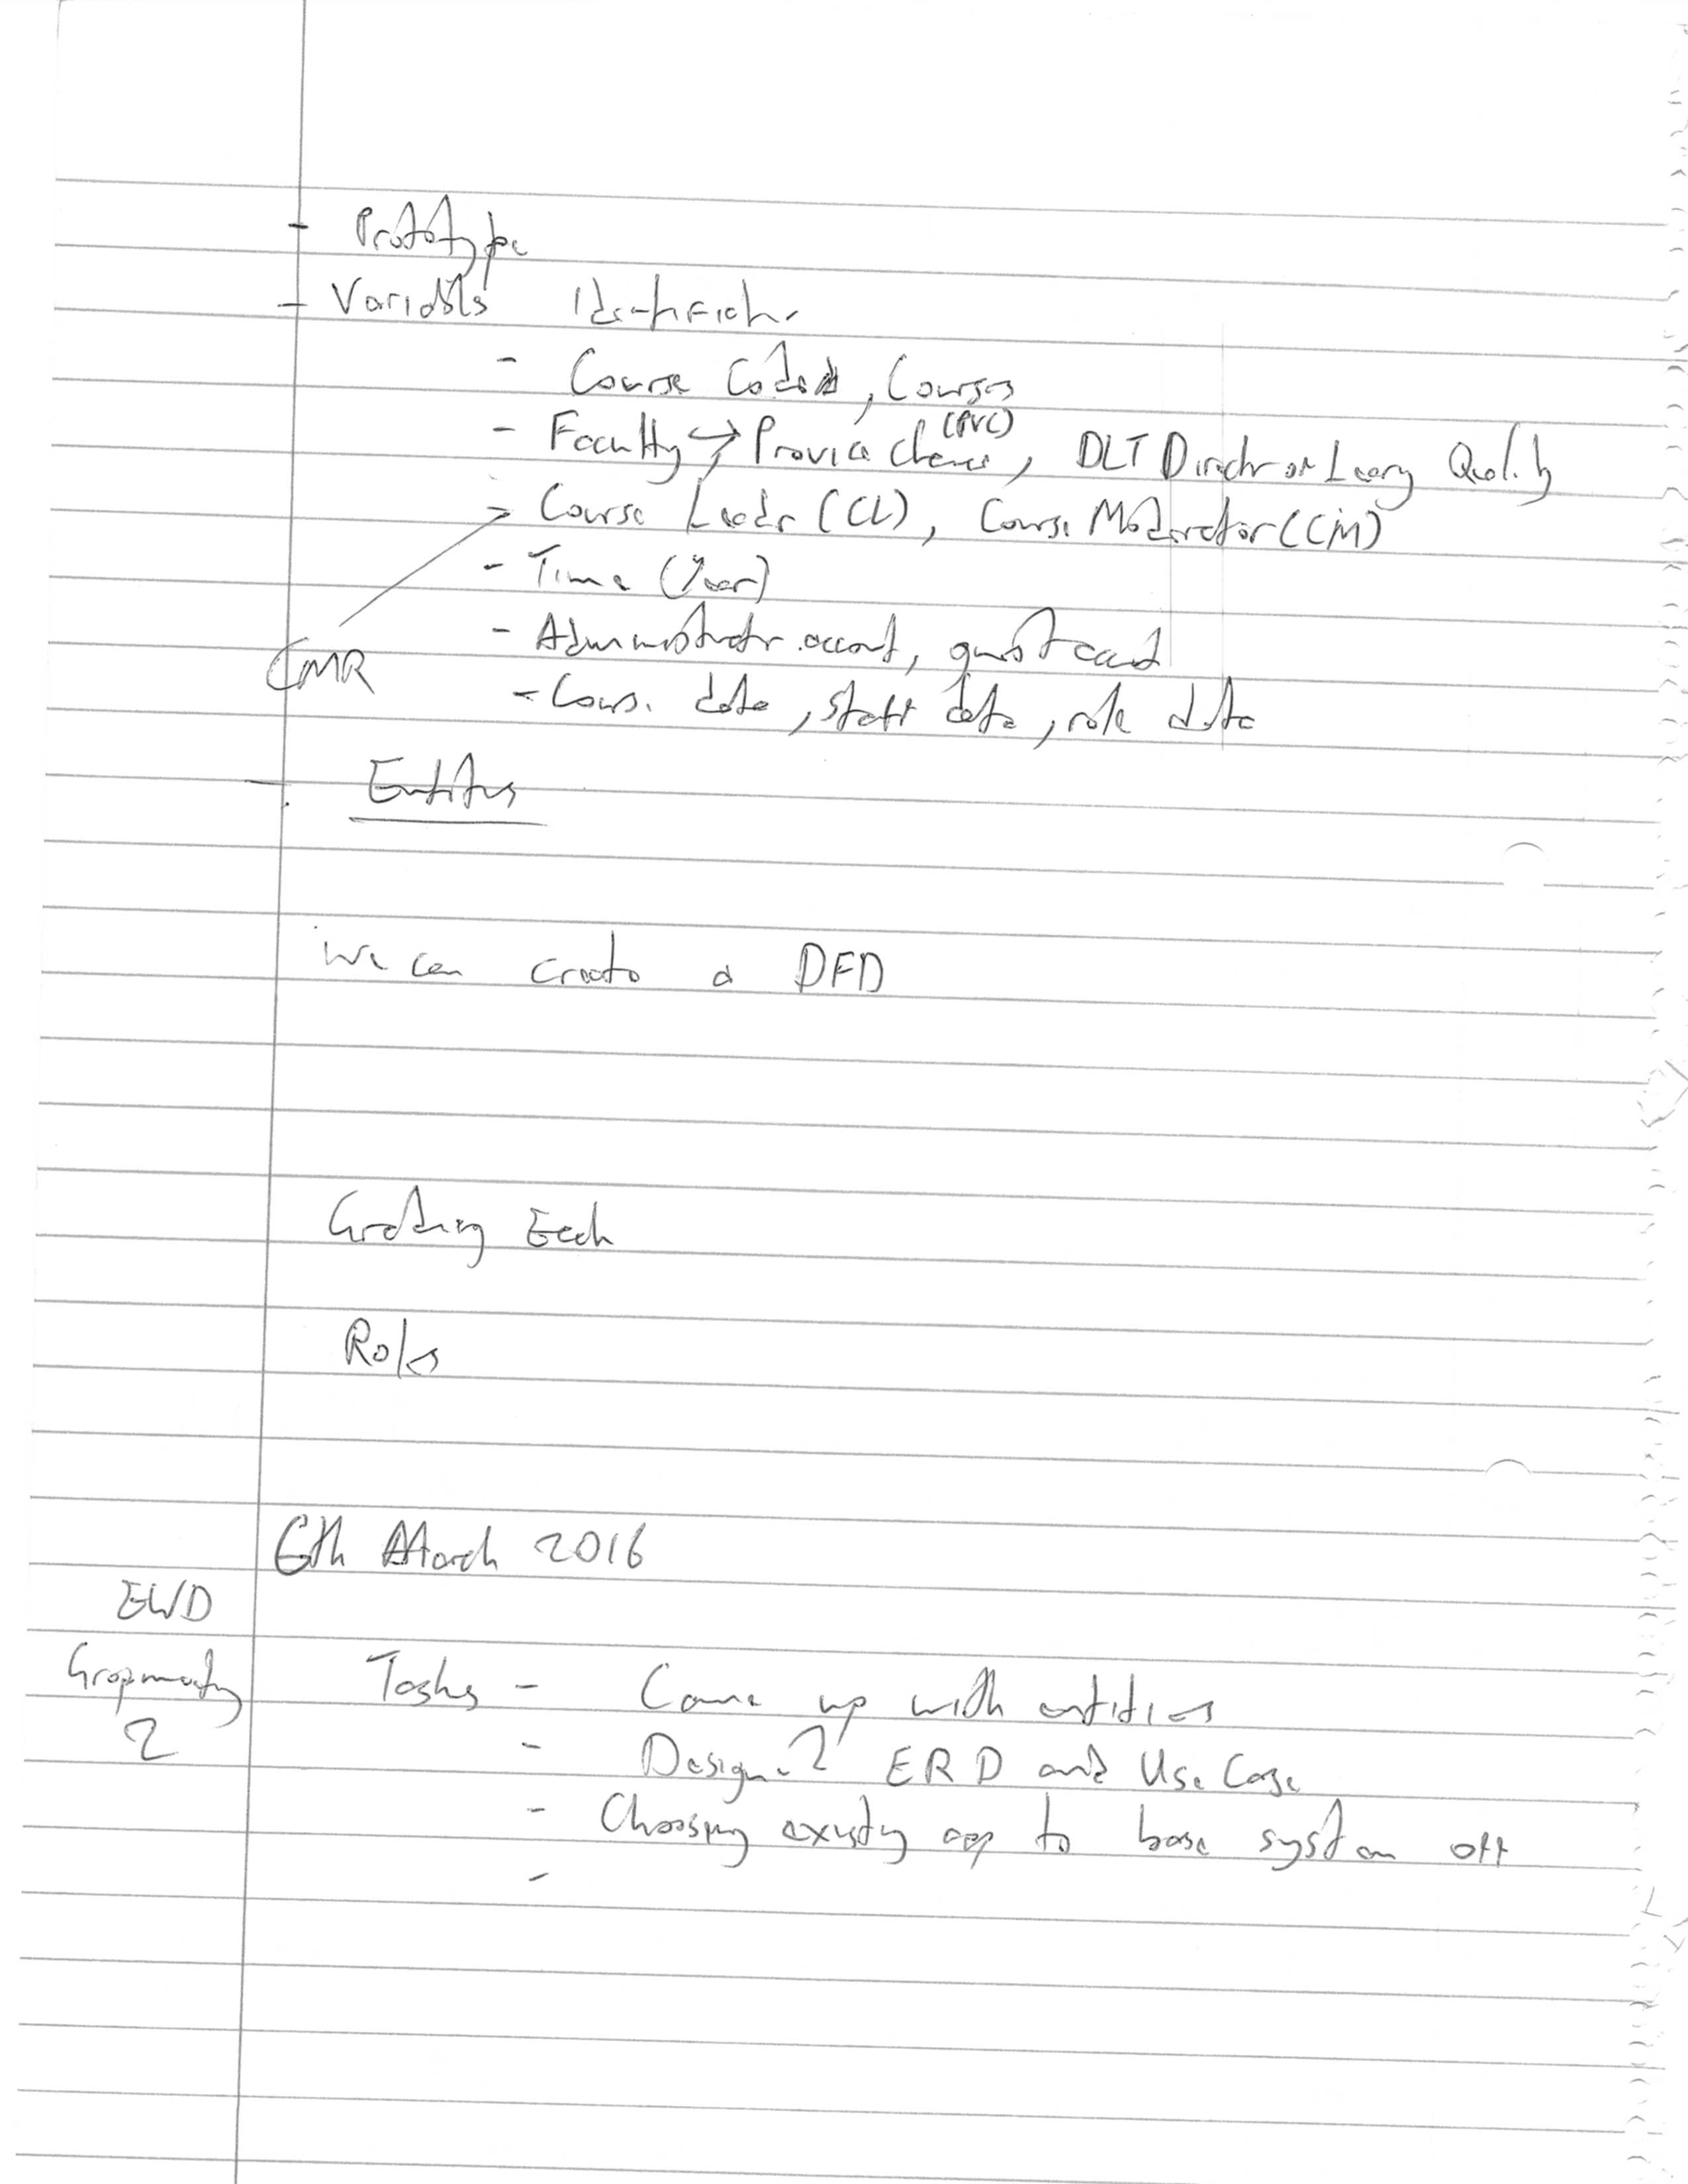 - Prototype
- Variables Identification
- Course Codes, Courses
- Faculty → Provice Chance (PVC), DLT Director of Learng Quality
- Course Leader (CL), Course Moderator (CM)
- Time (Year)
- Administrator account, guest account
CMR
- Course data, staff data, role data
- Entities
We can create a DFD
Grading Each
Roles
6th March 2016
EWD
Tasks - Come up with entities
Gropmeeting
2
- Design ERD and Use Case
- Choosing existing app to base system off
-